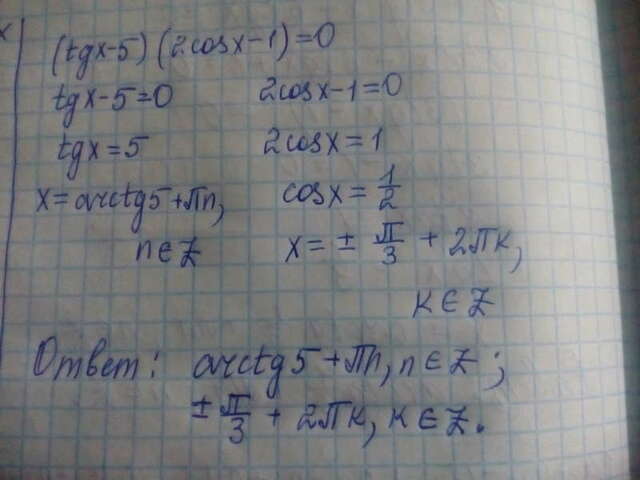 (tgx-5)(2cosx-1)=0
tgx-5=0 2cosx-1=0
tgx=5 2cosx=1
x=arctg5+πn, cosx=1/2
n∈Z x=± π/3 + 2πк,
к∈Z
Ответ: arctg5+πn, n∈Z;
± π/3 + 2πк, к∈Z.